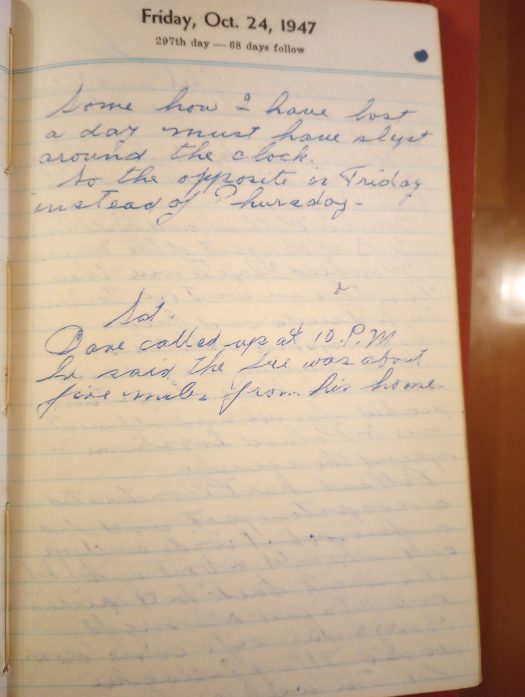 Friday, Oct. 24, 1947
297th day — 68 days follow
Some how I have lost
a day must have slept
around the clock.
So the opposite is Friday
instead of Thursday-
Sat.
Dave called up at 10.P.M
he said the fire was about
five miles from his home.